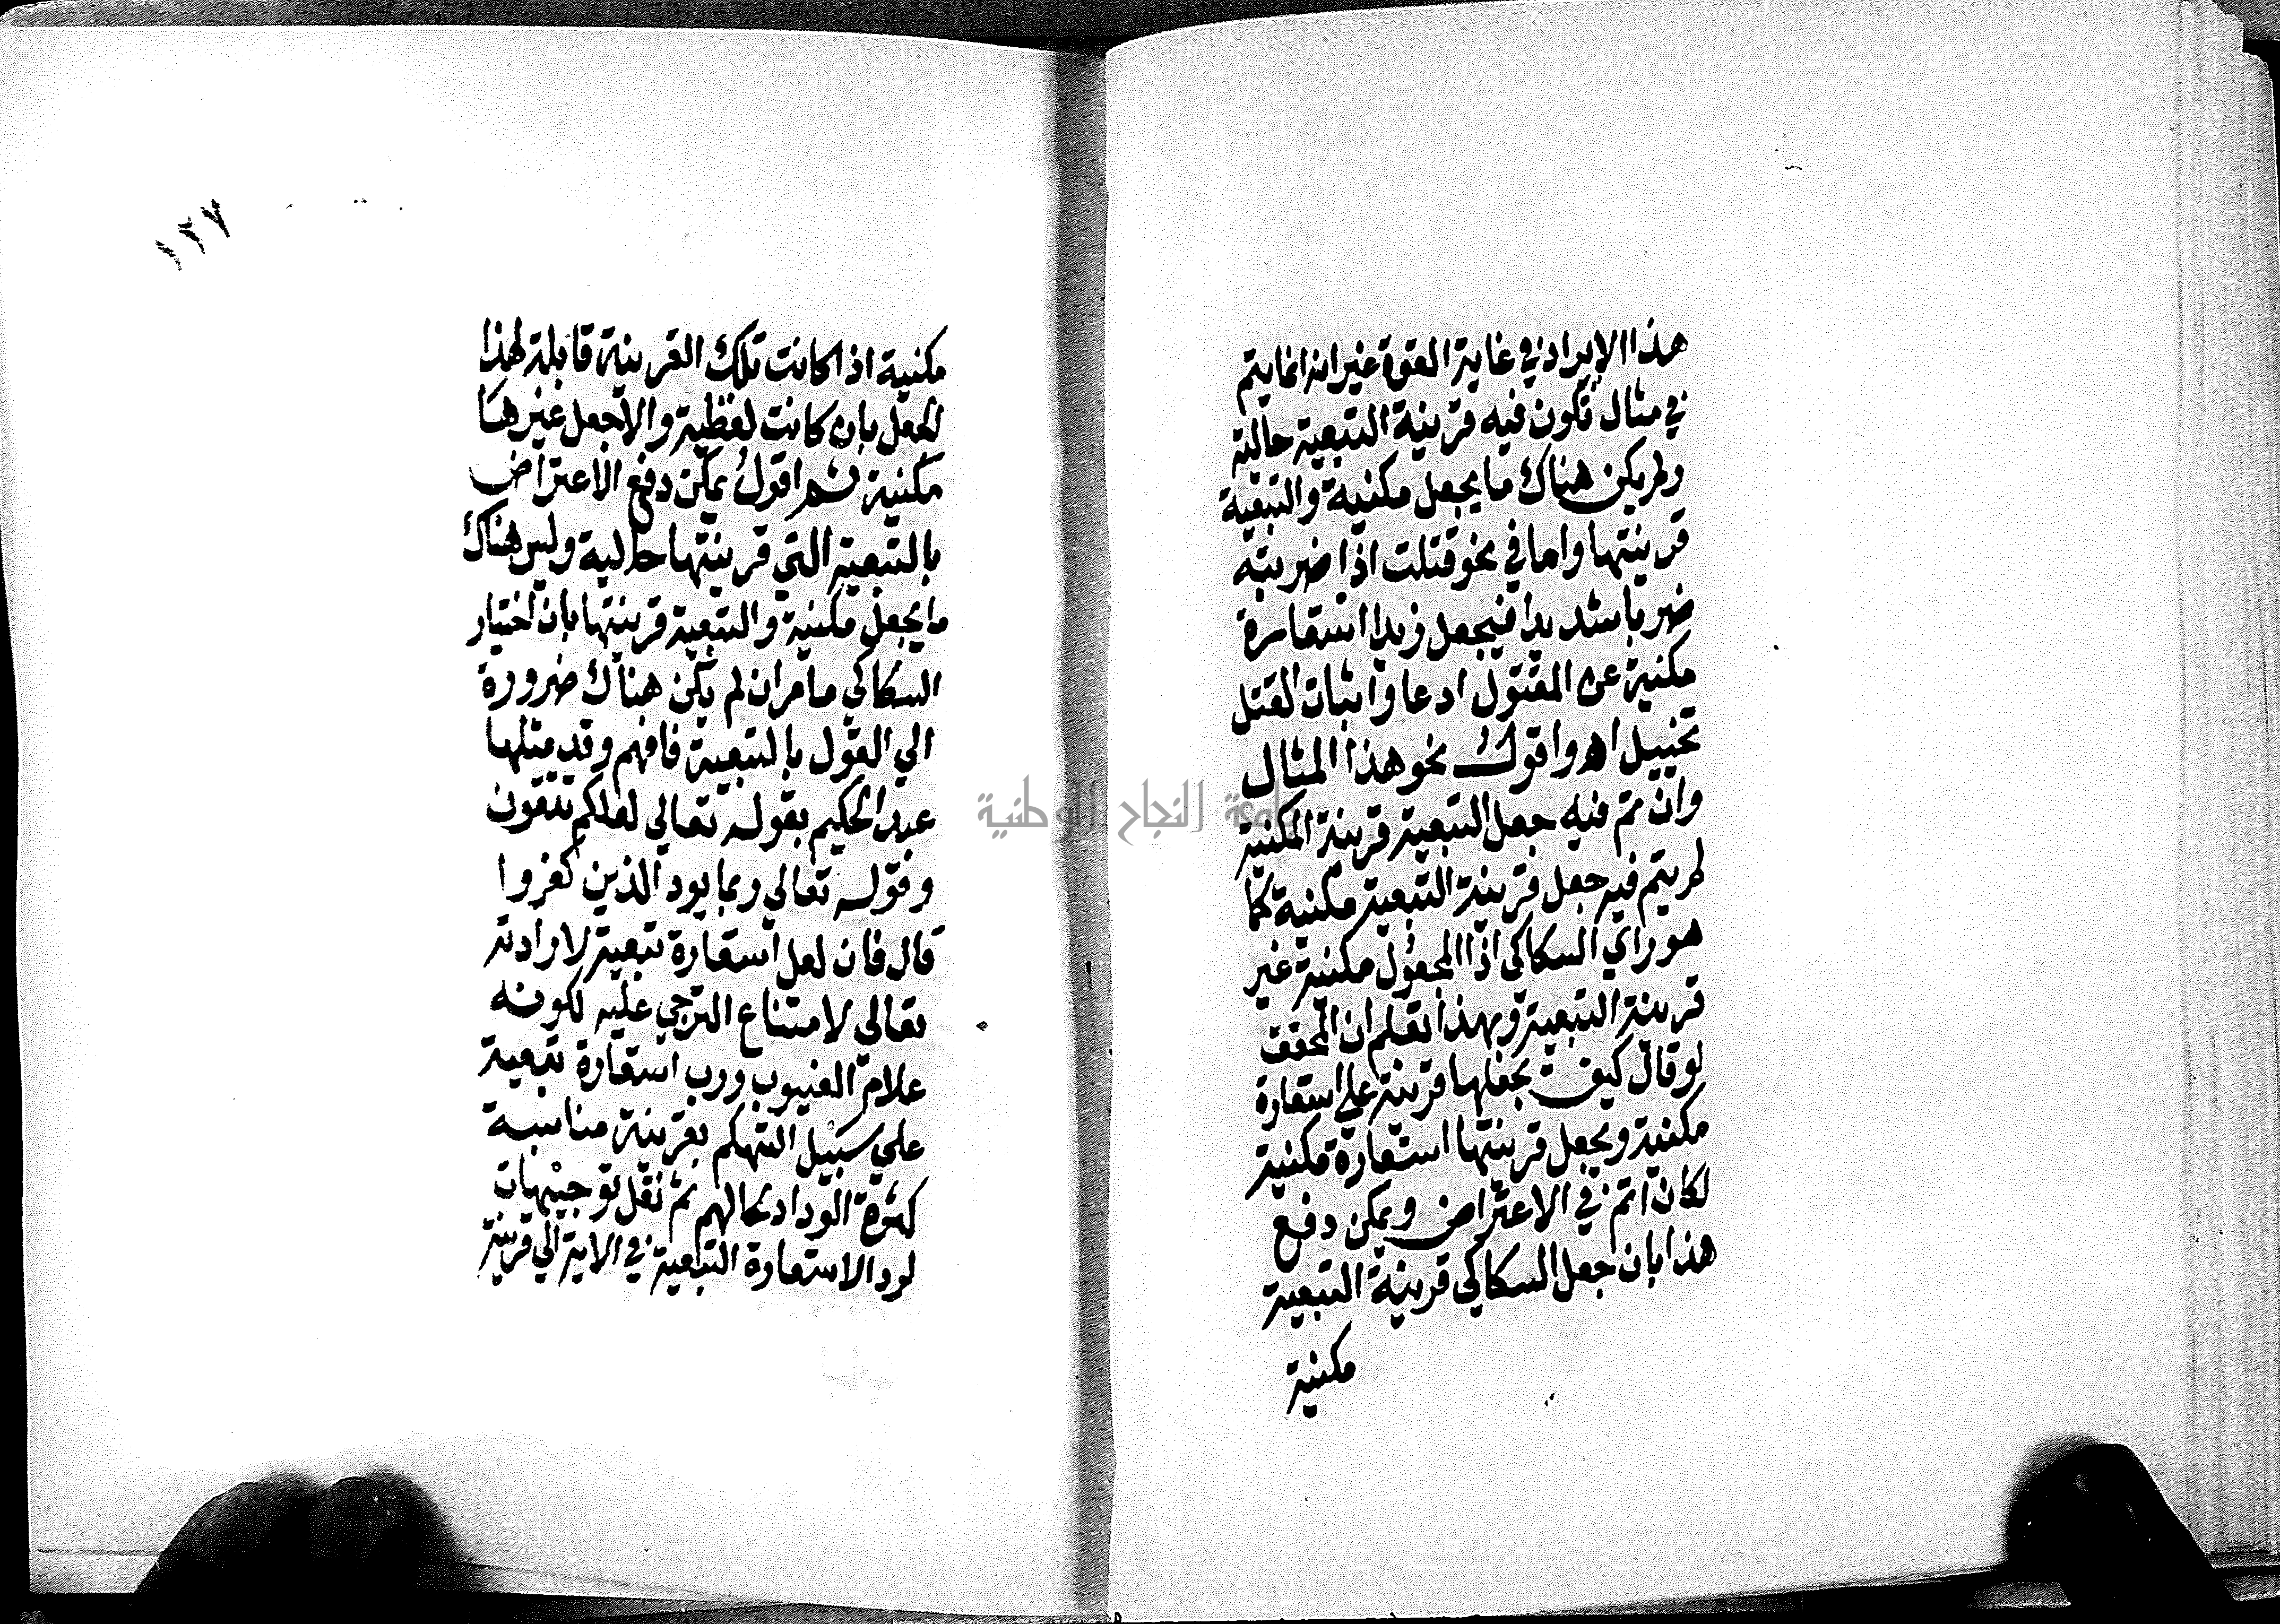 هذا الايراد في غاية القوة غير انه انما يتم
في مثال تكون فيه قرينة التبعية حالية
ولم يكن هناك ما يجعل مكنية والتبعية
قرينتها واما في نحو قتلت اذا ضربته
ضربا شديدا فيجعل زيدا استعارة
مكنية عن المقتول ادعا واثبات القتل
تخييل اهـ واقول نحو هذا المثال
وان تم فيه جعل التبعية قرينة المكنية
لم يتم فيه جعل قرينة التبعية مكنية كما
هو راي السكاكي اذا المجعول مكنية غير
قرينة التبعية وبهذا تعلم ان المحقق
لو قال كيف يجعلها قرينة على استعارة
مكنية ويجعل قرينتها استعارة مكنية
لكان اتم في الاعتراض ويمكن دفع
هذا بان جعل السكاكي قرينة التبعية
مكنية
١٢٧
مكنية اذا كانت تلك القرينة قابلة لهذا
الجعل بان كانت لفظية والا جعل غيرها
مكنية ثم اقول يمكن دفع الاعتراض
بالتبعية التي قرينتها حالية وليس هناك
ما يجعل مكنية والتبعية قرينتها بان اختيار
السكاكي ما مر ان لم يكن هناك ضرورة
الي القول بالتبعية فافهم وقد مثلها
عبد الحكيم بقوله تعالي لعلكم تتقون
وقوله تعالي ربما يود الذين كفروا
قال فان لعل استعارة تبعية لارادته
تعالى لامتناع الترجي عليه لكونه
علام الغيوب ورب استعارة تبعية
علي سبيل التهكم بقرينة مناسبة
كثرة الوداد لحالهم ثم نقل توجيهات
لرد الاستعارة التبعية في الاية الي قرينة
جامعة النجاح الوطنية